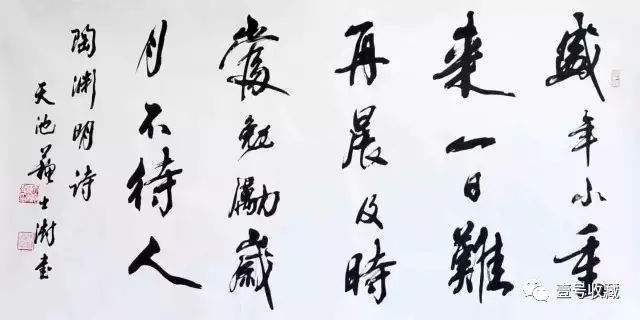 盛年不重
来一日難
再晨及時
當勉勵歲
月不待人
陶渊明诗
天池蘇士澍書
壹号收藏